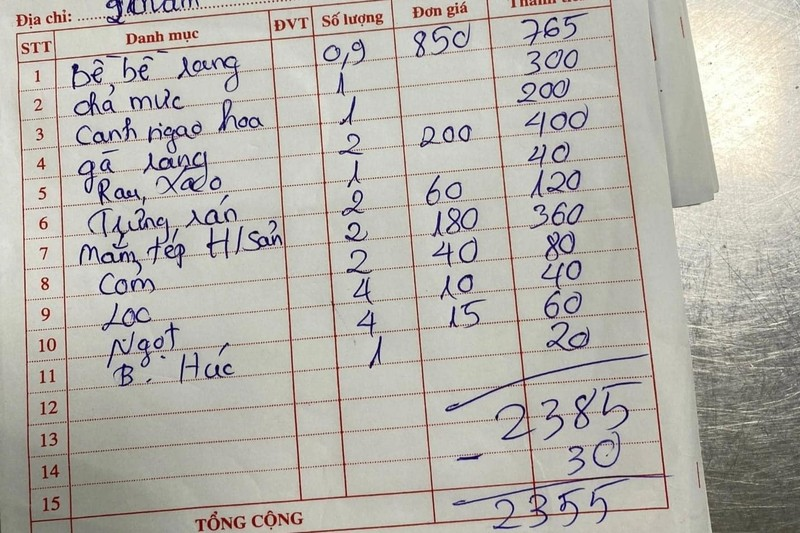 Địa chỉ:
STT Danh mục ĐVT Số lượng Đơn giá
1 Bề bề rang 0,9 850 765
2 Chả mực 1 300
3 Canh ngao hoa 1 200
4 gà rang 2 200 400
5 Rau xào 1 40
6 Trứng rán 2 60 120
7 Mắm tép H/sản 2 180 360
8 Cơm 2 40 80
9 Loc 4 10 40
10 Ngọt 4 15 60
11 B. Húc 1 20
12 2385
13
14 - 30
15 2355
TỔNG CỘNG